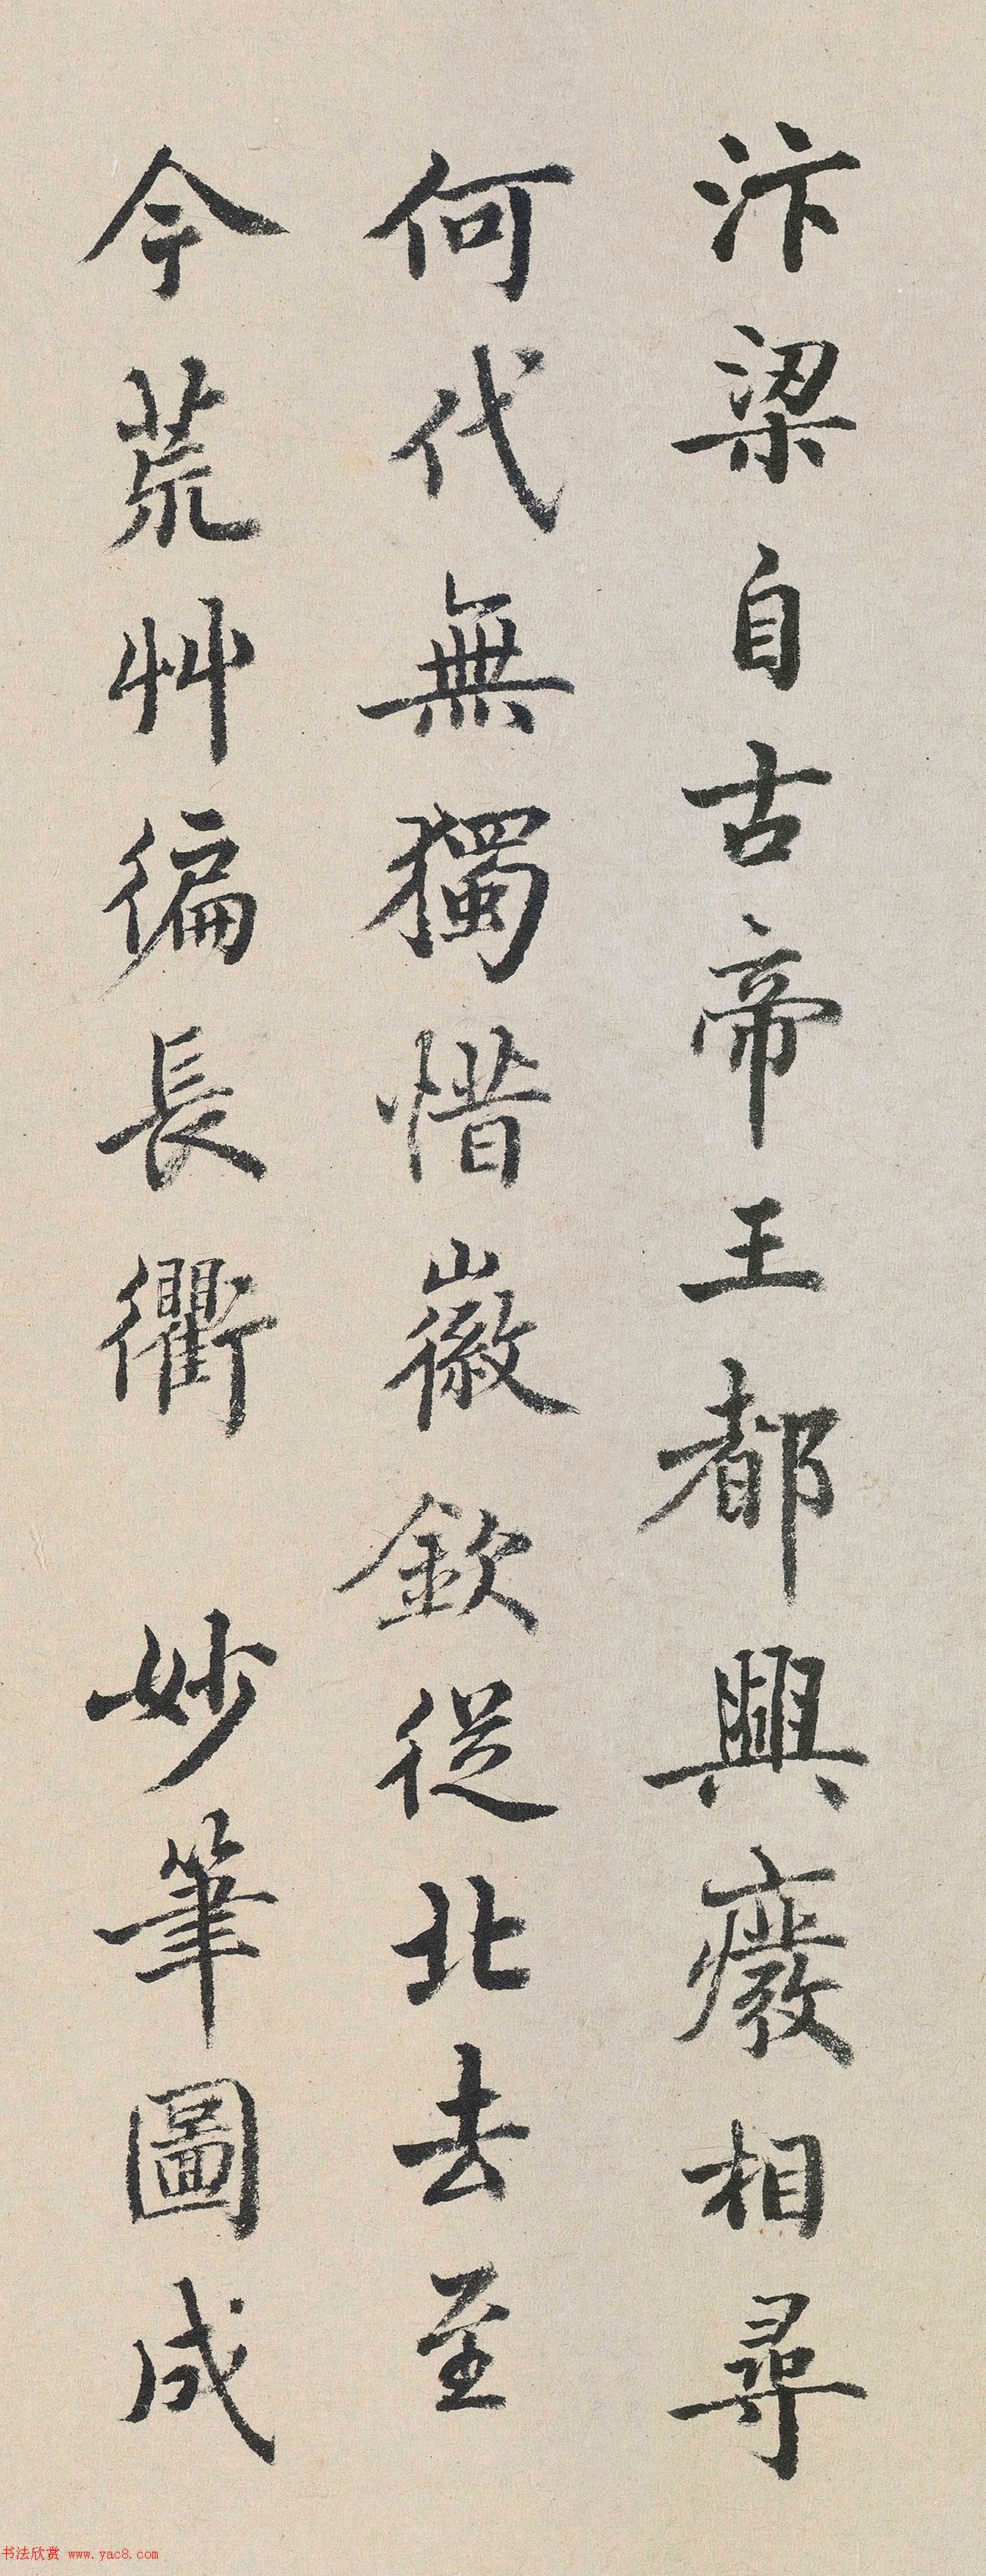 汴梁自古帝王都興廢相尋
何代無獨惜徽欽從北去至
今荒艸徧長衢 妙筆圖成
书法欣赏 www.yac8.com